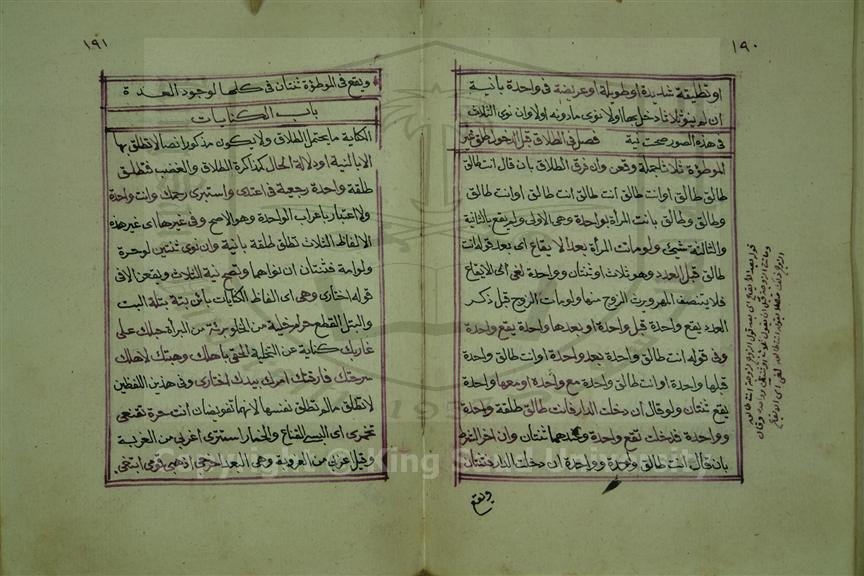 ١٩٠
او تطليقة شديدة او طويلة او عريضة في واحدة بانية
ان لم ينو ثلاثا دخل بها او لا نوى مادونه اولا وان نوى الثلاث
في هذه الصور صحت نية فصل في الطلاق قبل الدخول طلق غير
الموطؤة ثلاثا جملة وقعن وان فرق الطلاق بان قال انت طالق
طالق طالق او انت طالق انت طالق انت طالق او انت طالق
وطالق وطالق بانت المرأة بواحدة وهي الاولى ولم يقع بالثانية
والثالثة شيئ ولو ماتت المرأة بعد الايقاع اي بعد قوله انت
طالق قبل العدد وهو ثلاث او ثنتان وواحدة لغى اي الايقاع
فلا يتنصف المهر ورث الزوج منها ولو مات الزوج قبل ذكر
العدد يقع واحدة قبل واحدة او بعدها واحدة يقع واحدة
وفي قوله انت طالق واحدة بعد واحدة او انت طالق واحدة
قبلها واحدة او انت طالق واحدة مع واحدة او معها واحدة
يقع ثنتان ولو قال ان دخلت الدار فانت طالق طلقة واحدة
وواحدة فدخلت تقع واحدة وعندهما ثنتان وان اخر الشرط
بان قال انت طالق واحدة وواحدة ان دخلت الدار فثنتان
ويقع
١٩١
ويقع في الموطؤة ثنتان في كلها لوجود العدة
باب الكنايات
الكناية ما يحتمل الطلاق ولا يكون مذكورا نصا لا تطلق بها
الا بالنية او دلالة الحال كمذاكرة الطلاق والغضب فتطلق
طلقة واحدة رجعية في اعتدى واستبرى رحمك وانت واحدة
ولا اعتبار باعراب الواحدة وهو الاصح وفي غيرها اي غير هذه
الالفاظ الثلاث تطلق طلقة بانية وان نوى ثنتين لو حرة
ولو امة فثنتان ان نواهما وتصح نية الثلاث ويقعن الا في
قوله اختارى وهي اي الفاظ الكنايات باين بتة بتلة البت
والبتل القطع حرام خلية من الخلو برئة من البرأة حبلك على
غاربك كناية عن التخلية الحقى باهلك وهبتك لاهلك
سرحتك فارقتك امرك بيدك اختارى وفي هذين اللفظين
لا تطلق مالم تطلق نفسها لانهما تفويضان انت حرة تقنعى
تخمرى اي البسى القناع والخمار استترى اغربى من الغربة
وقيل اعزبى من العزوبة وهي البعد اخرجى اذهبى قومى ابتغى
Copyright © King Saud University